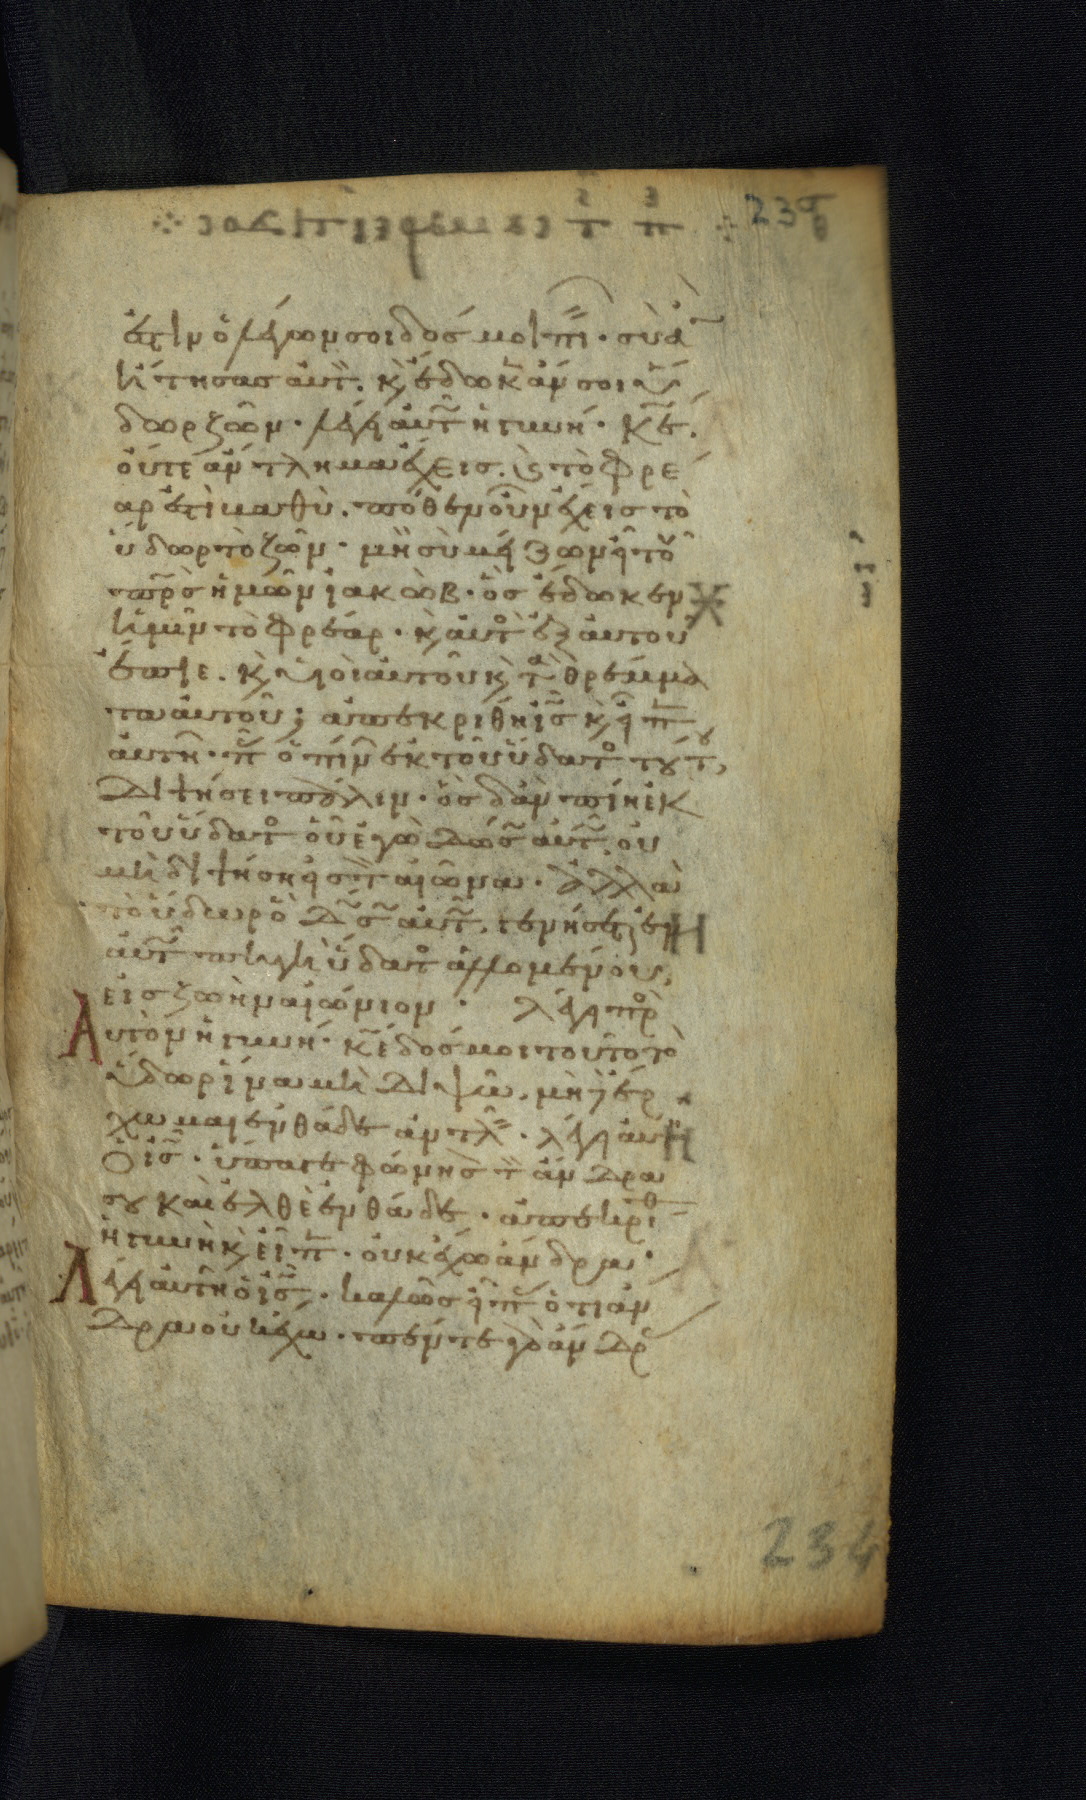 23σ
θ
ἐστὶν ὁ λέγων σοι δός μοι πι· σὺ ἂ
ᾔτησας αὐτ. κ ἔδωκ ἄν σοι ὕ
δωρ ζῶν· λέγει αὐτ ἡ γυνή· κε.
οὔτε ἄντλημα ἔχεις. κ τὸ φρέ
αρ ἐστὶ βαθύ. πόθεν οὖν ἔχεις τὸ
ὕδωρ τὸ ζῶν· μὴ σὺ μείζων εἶ τοῦ
πρς ἡμῶν ἰακώβ· ὃς ἔδωκεν
ἡμῖν τὸ φρέαρ· κ αὐτο ἐξ αὐτοῦ
ἔπιε. κ οἱ υἱοὶ αὐτοῦ κ τα θρέμμα
τα αὐτοῦ; ἀπεκρίθη ις κ εἶπ
αὐτῆ· π ὁ πίνων ἐκ τοῦ ὕδατο τούτου,
διψήσει πάλιν· ὃς δ' ἂν πίη ἐκ
τοῦ ὕδατο οὗ ἐγὼ δώσ αὐτ. οὐ
μὴ διψήσῃ εἰς τ αἰῶνα· ἀλλὰ
τὸ ὕδωρ ὃ δώσ αὐτ, γενήσεται ἐν
αὐτ πηγὴ ὕδατο ἁλλομένου,
εἰς ζωὴν αἰώνιον· λέγει πρ
Αὐτὸν ἡ γυνή· κε δός μοι τοῦτο τὸ
ὕδωρ ἵνα μὴ διψῶ, μηδὲ ἔρ
χωμαι ἐνθάδε ἀντλ· λέγει αὐτῆ
ὁ ις· ὕπαγε φώνησ τ ἄνδρα
σου καὶ ἐλθὲ ἐνθάδε· ἀπεκρίθ
ἡ γυνὴ κ εἶπ· οὐκ ἔχω ἄνδρα·
Λέγει αὐτῆ ὁ ις· καλῶς εἶπ ὅτι ἄν
δρα οὐκ ἔχω· πέντε γὰρ ἄνδρ
234